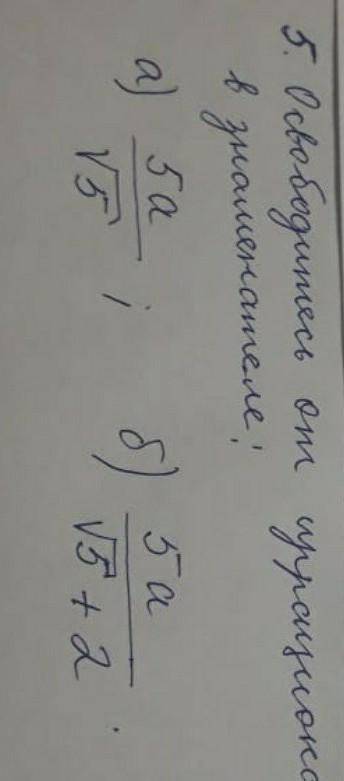 5. Освободитесь от иррацион
в знаменателе:
а) 5a/√5 ; б) 5a/(√5 + 2) .